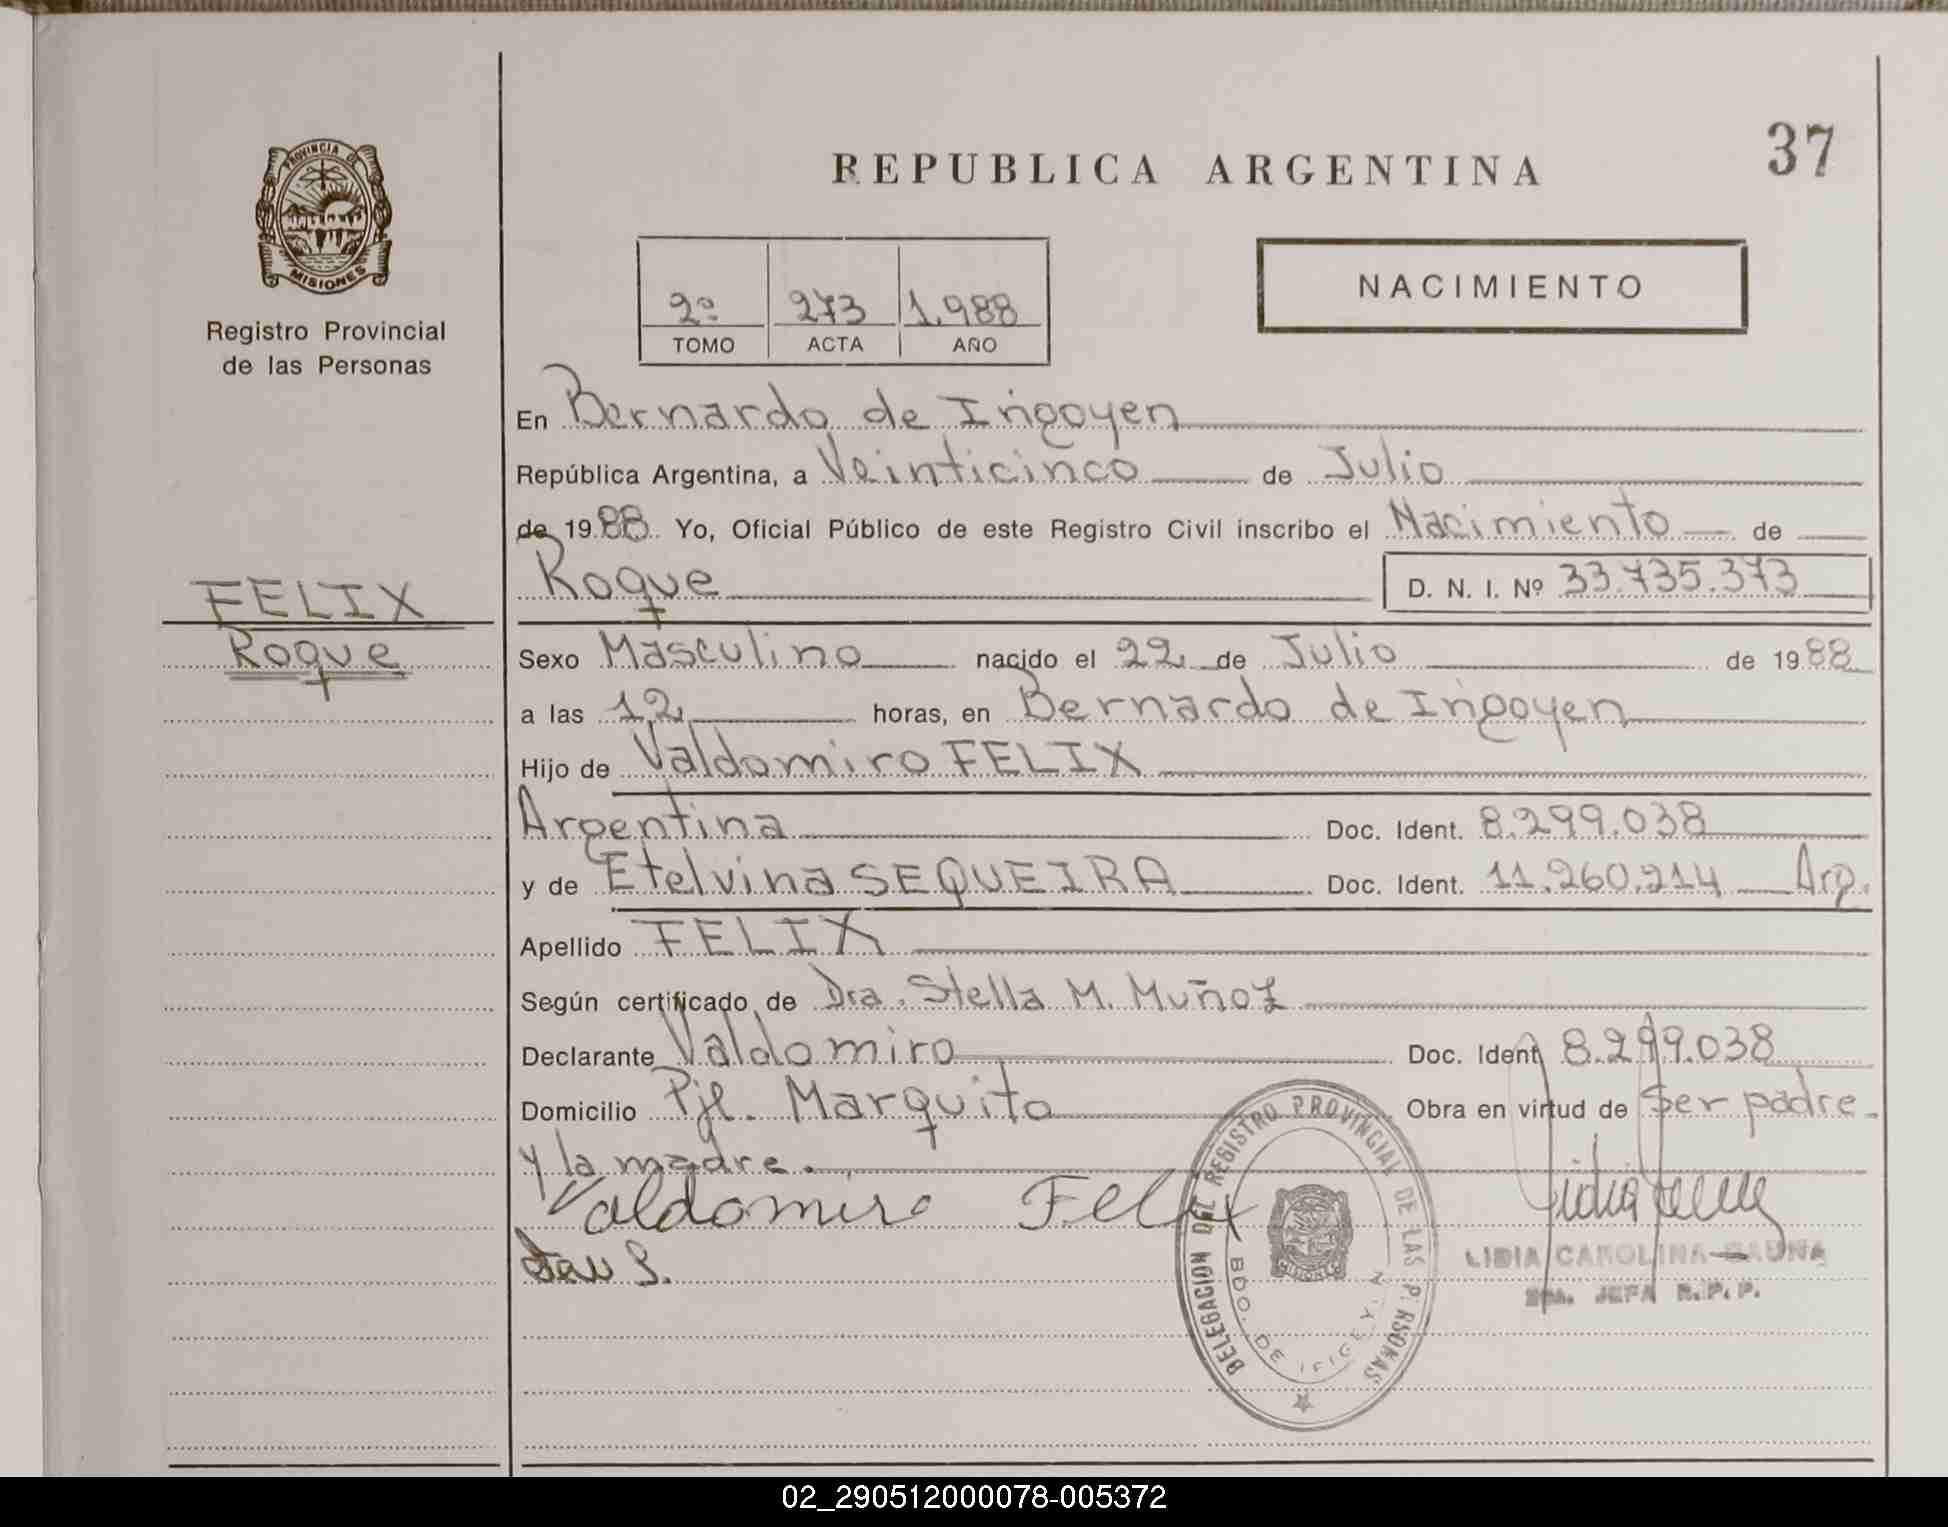 37
REPUBLICA ARGENTINA
PROVINCIA DE
MISIONES
Registro Provincial
de las Personas
NACIMIENTO
2º 273 1.988
TOMO ACTA AÑO
En Bernardo de Irigoyen
República Argentina, a Veinticinco de Julio
de 1988 Yo, Oficial Público de este Registro Civil inscribo el Nacimiento de
Roque D. N. I. Nº 33.735.373
FELIX
Roque
Sexo Masculino nacido el 22 de Julio de 1988
a las 12 horas, en Bernardo de Irigoyen
Hijo de Valdomiro FELIX
Argentina Doc. Ident. 8.299.038
y de Etelvina SEQUEIRA Doc. Ident. 11.260.214 Arg.
Apellido FELIX
Según certificado de Dra. Stella M. Muñoz
Declarante Valdomiro Doc. Ident. 8.299.038
Domicilio Pje. Marquito Obra en virtud de Ser padre
y la madre.
Valdomiro Felix
DELEGACION DEL REGISTRO PROVINCIAL DE LAS P RSONAS
BDO. DE
LIDIA CAROLINA
JEFA R.P.P.
02_290512000078-005372